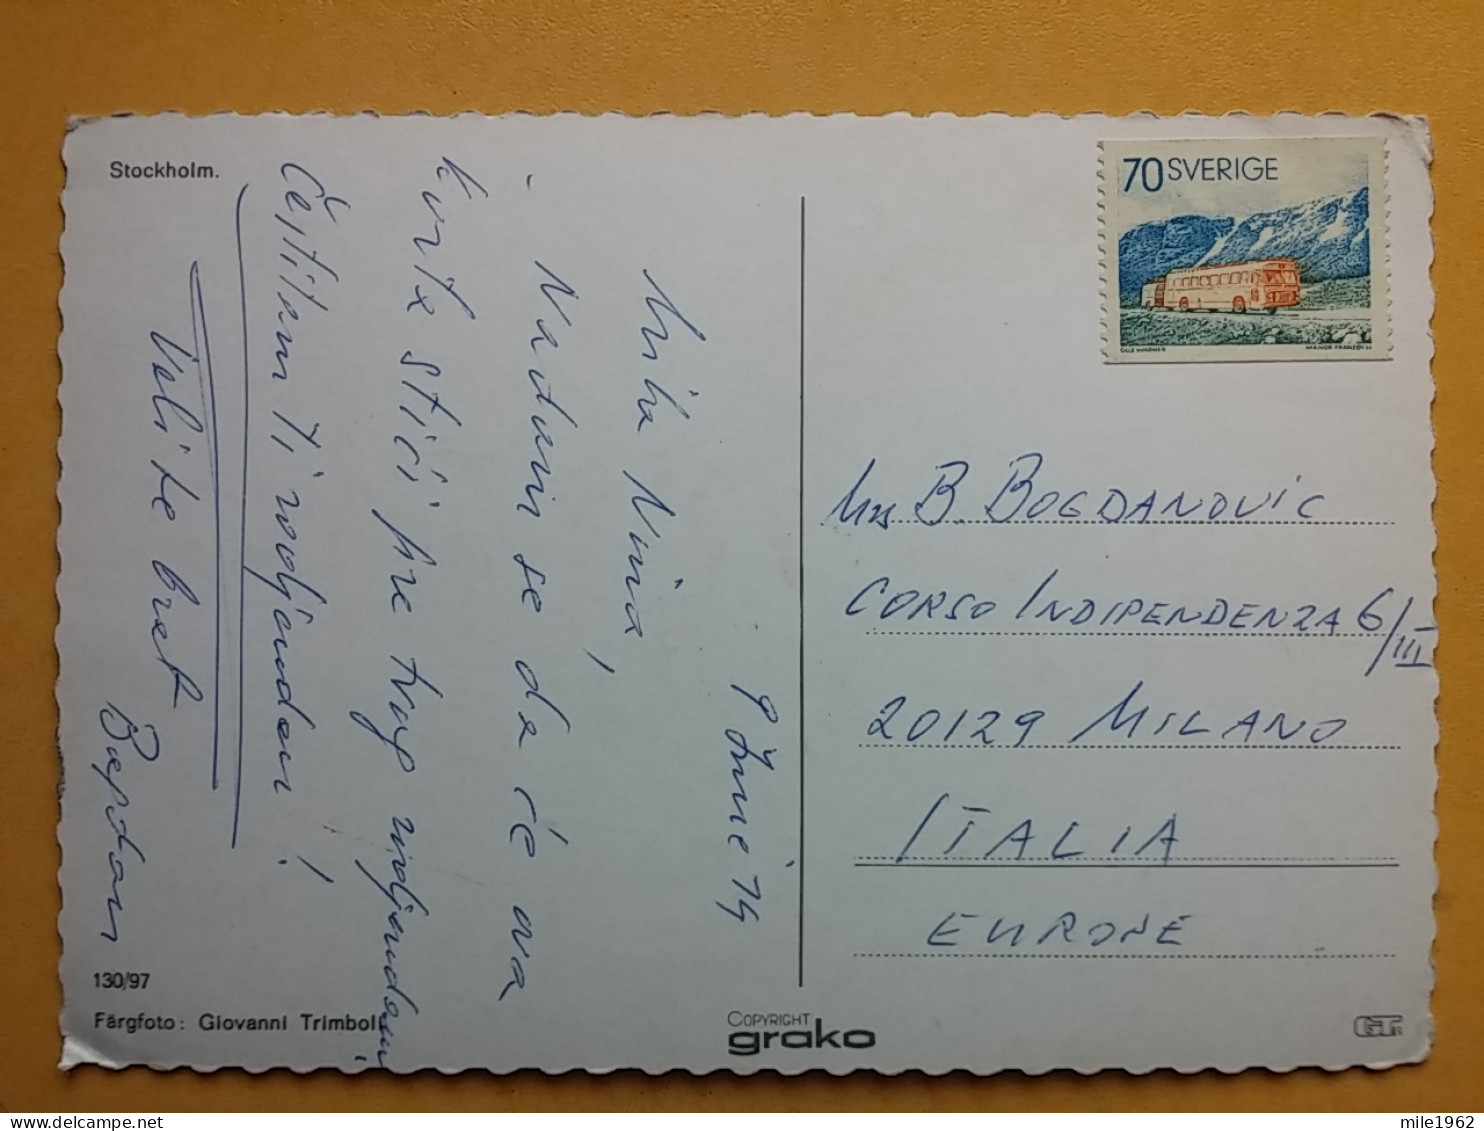 Stockholm.
9 June 74
Mila Nina,
Nadam se da će ova
karta stići pre tvog rodjendana
Čestitam ti rodjendan!
Veliki brat
Bogdan
130/97
Färgfoto: Giovanni Trimboli
COPYRIGHT
grako
70 SVERIGE
Mrs B. BOGDANOVIC
CORSO INDIPENDENZA 6/III
20129 MILANO
ITALIA
EUROPE
mile1962